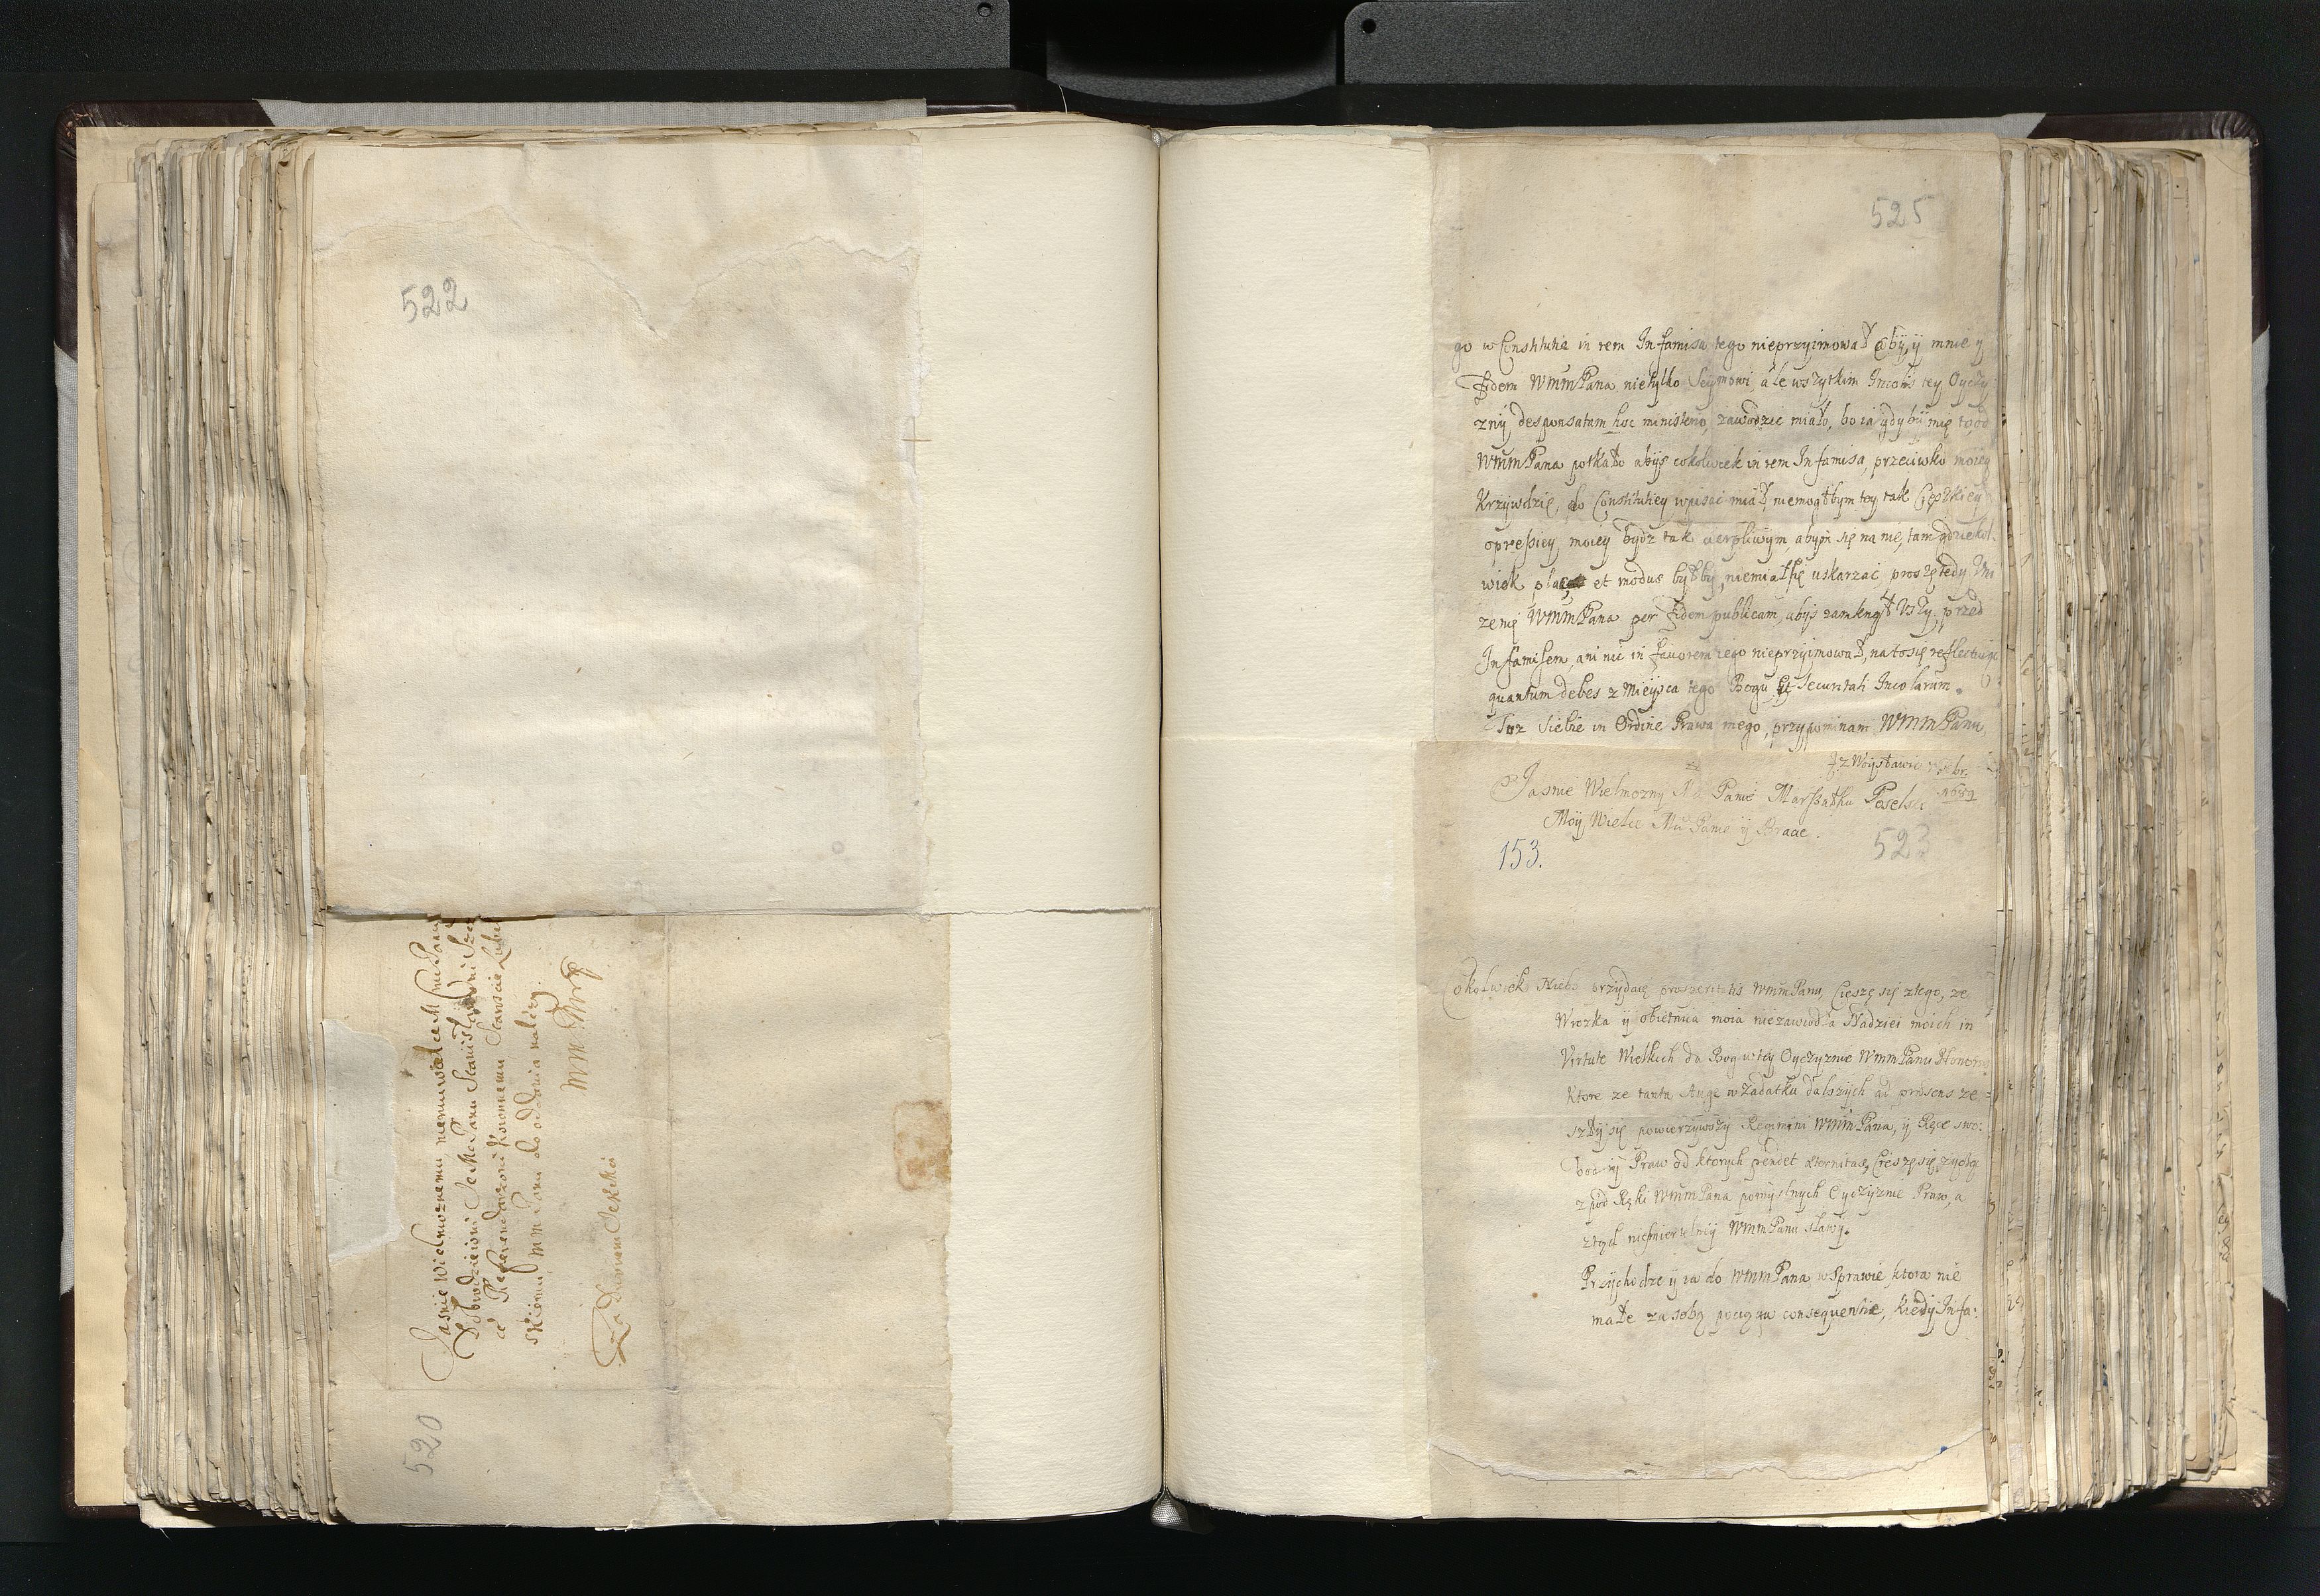 522
Jasnie Wielmoznemu memu wielce Mswu Panu
Dobrodzieiowi Je Mc Panu Stanisławowi Szc
ce Referendarzowi koronnemu Staroscie Lube
skiemu, mm Panu do oddania nalezy.
520
525
go w Constitutia in rem Infamisa tego nieprzyimował aby, y mnie y
Fidem WmmPana nietylko Seymowi ale wszytkim Incolis tey Oyczy
zny desponsatam hoc ministerio, zawodzic miało, bo ia gdyby mię to, od
WmmPana potkało abys cokolwiek in rem Infamisa, przeciwko moiey
Krzywdzie, do Constitutiey wpisać miał, niemogłbym tey tak Ciężkiey
opressiey moiey bydz tak cierpliwym, abym się na nię, tam gdziekol
wiek et modus byłby, niemiał się uskarzac proszę tedy Uni
zenię WmmPana per Fidem publicam, abys zamknął Uszy, przed
Infamisem, ani nic in favorem iego nieprzyimował, na to się reflectuiąc
quantum debes z Mieysca tego Bogu Et Securitati Incolarum.
Tuz Siebie in Ordine Prawa mego, przypominam WMmPanu
Z Woysławic
1659
Jasnie Wielmozny Mci Panie Marszałku Poselski
Moy, Wielce Mci Panie y Bracie.
153.
523
Cokolwiek Niebo przydaię prosperitatis WmmPanu, Cieszę się ztego, ze
Wrozka y obietnica moia niezawiodła Nadziei moich in
Virtute Wielkich da Bog w tey Oyczyznie WmmPanu Honorow
Ktore ze tanta Auge w Zadatku dalszych ad præsens ze
szły się powierzywszy Regimini WmmPana, y Ręce swo:
bod y Praw od ktorych pendet æternitas, Cieszę się życzę
z pod Ręki WmmPana pomyslnych Oyczyznie Praw, a
ztąd niesmiertelney WmmPanu sławy.
Przychodzę y ia do WmmPana w Sprawie, ktora nie
małe za sobą pociąga consequentie, kiedy Infa: